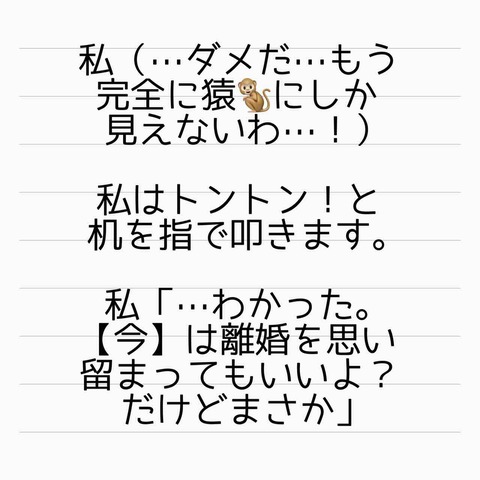 私（…ダメだ…もう
完全に猿🐒にしか
見えないわ…！）
私はトントン！と
机を指で叩きます。
私「…わかった。
【今】は離婚を思い
留まってもいいよ？
だけどまさか」